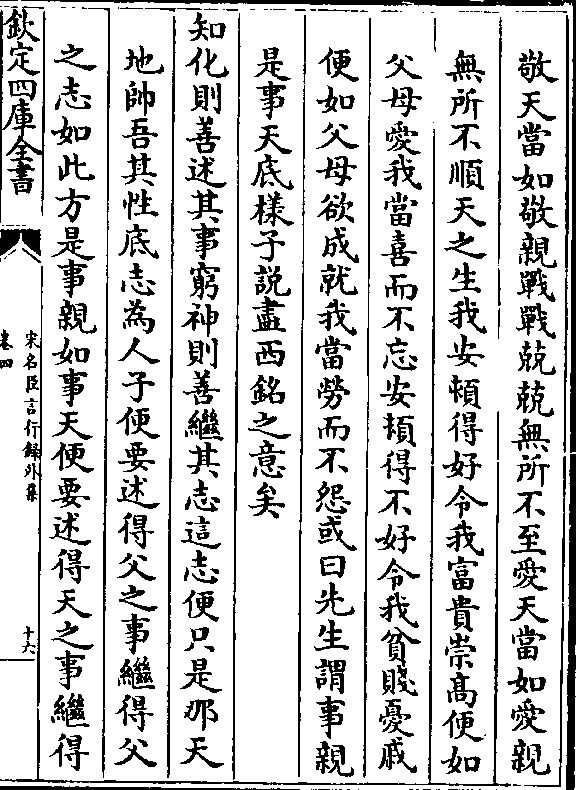 敬天當如敬親戰戰兢兢無所不至愛天當如愛親
無所不順天之生我安頓得好令我富貴崇髙便如
父母愛我當喜而不忘安頓得不好令我貧賤憂戚
便如父母欲成就我當勞而不怨或曰先生謂事親
是事天底樣子説盡西銘之意矣
知化則善述其事窮神則善繼其志這志便只是那天
地帥吾其性底志為人子便要述得父之事繼得父
之志如此方是事親如事天便要述得天之事繼得
欽定四庫全書
宋名臣言行録外集
卷四
十六